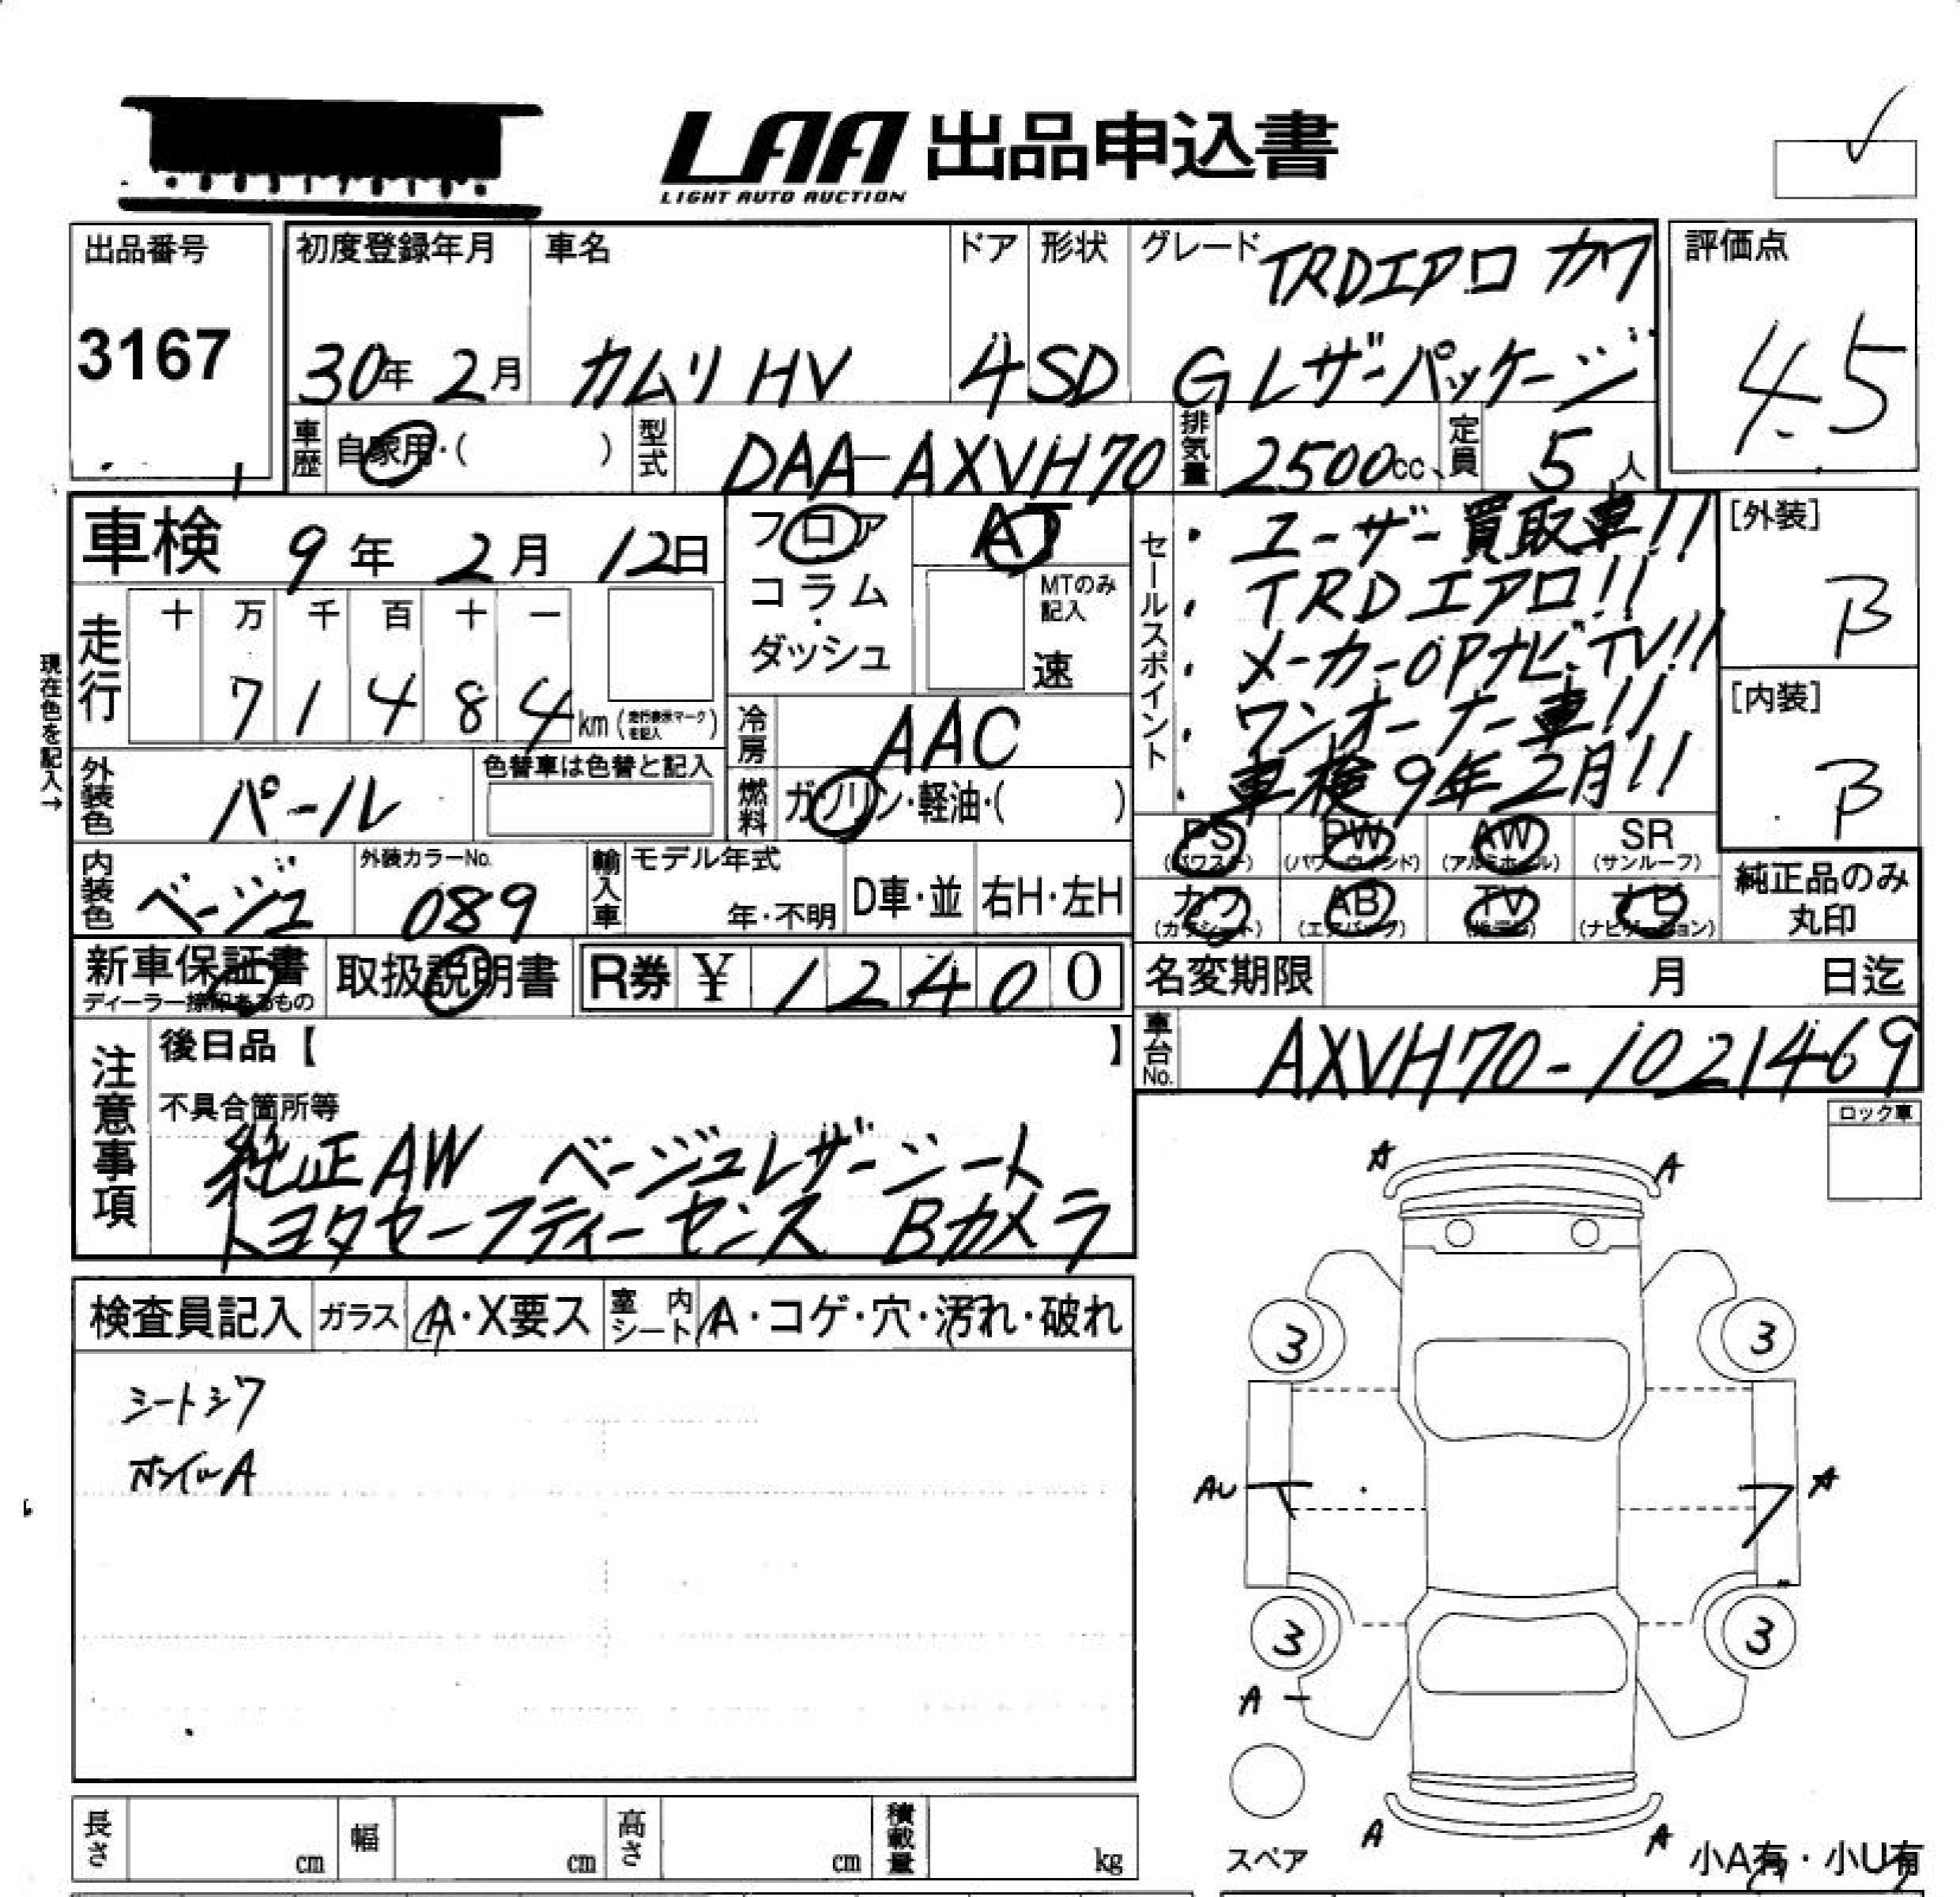 LAA 出品申込書
LIGHT AUTO AUCTION
出品番号
3167
初度登録年月
30年 2月
車名
カムリ HV
ドア
4
形状
SD
グレード TRDエアロ カワ
Gレザーパッケージ
評価点
4.5
車歴 自家用・( )
型式 DAA-AXVH70
排気量 2500cc
定員 5人
車検 9年 2月 12日
フロア
コラム
・
ダッシュ
AT
MTのみ
記入
速
セールスポイント
・ユーザー買取車!!
・TRDエアロ!!
・メーカーOPナビ・TV!!
・ワンオーナー車!!
・車検9年2月!!
[外装]
B
[内装]
B
現在色を記入→
走行
十 万 千 百 十 一
7 1 4 8 4 km (走行表示マークを記入)
冷房 AAC
外装色 パール
色替車は色替と記入
燃料 ガソリン・軽油・( )
PS (パワステ)
PW (パワーウィンド)
AW (アルミホイール)
SR (サンルーフ)
内装色 ベージュ
外装カラーNo.
089
輸入車
モデル年式
年・不明
D車・並
右H・左H
カワ (カワシート)
AB (エアバッグ)
TV
ナビ (ナビゲーション)
純正品のみ
丸印
新車保証書
取扱説明書
R券 ¥ 1 2 4 0 0
名変期限 月 日迄
車台No. AXVH70-1021469
注意事項
後日品【 】
不具合箇所等
純正AW ベージュレザーシート
トヨタセーフティーセンス Bカメラ
ロック車
検査員記入 ガラス A・X要ス 室内シート A・コゲ・穴・汚れ・破れ
シートシワ
ホイルA
A A
3 3
AU A
3 3
A
A A
スペア
小A有・小U有
長さ cm
幅 cm
高さ cm
積載量 kg